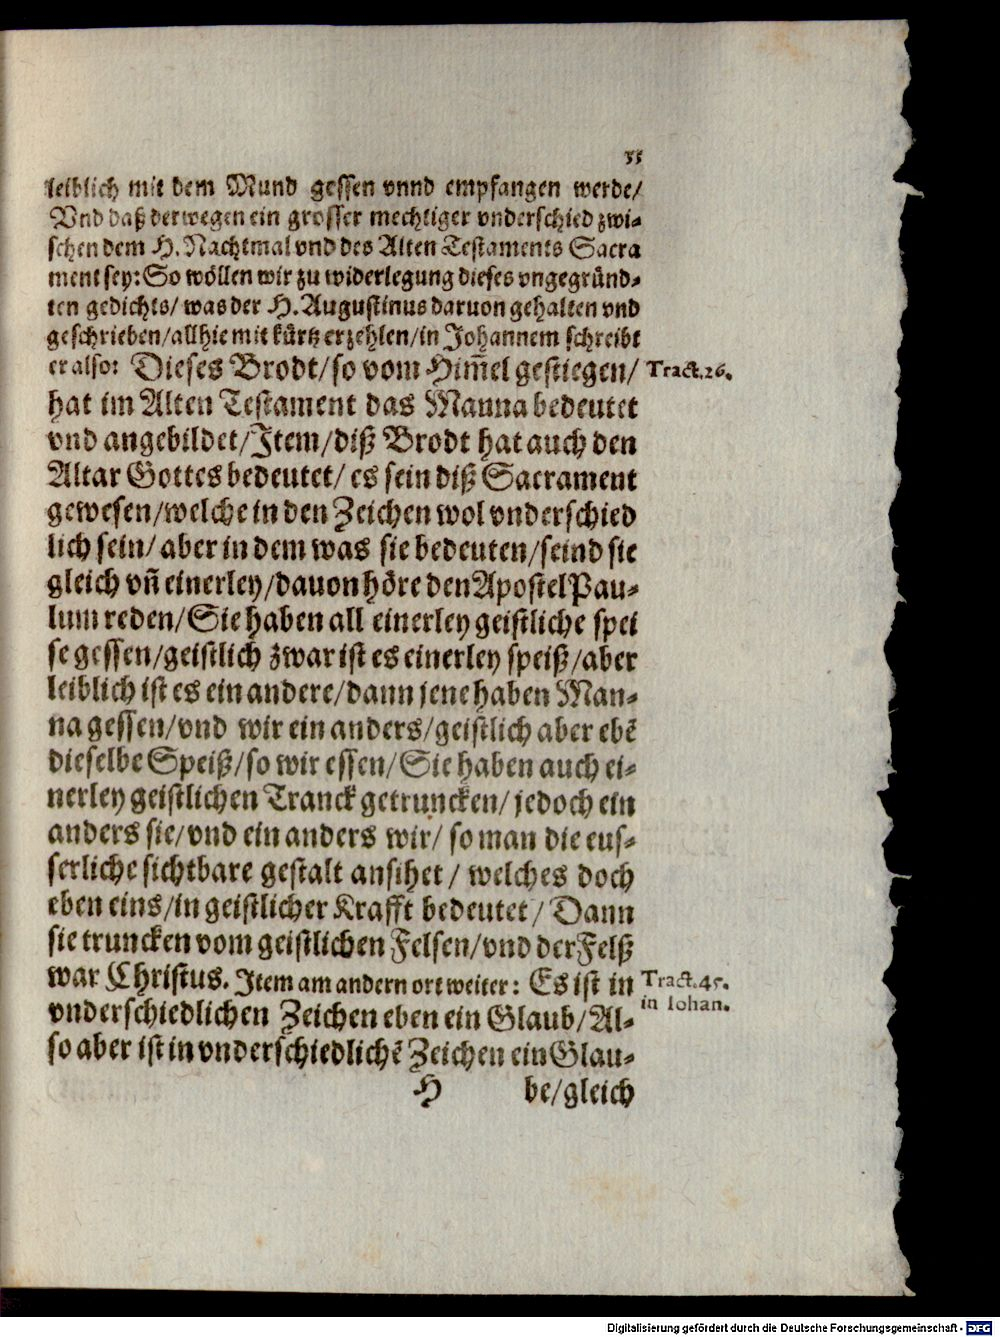 55
leiblich mit dem Mund gessen vnnd empfangen werde/
Vnd daß derwegen ein grosser mechtiger vnderschied zwi-
schen dem H. Nachtmal vnd des Alten Testaments Sacra
ment sey: So wöllen wir zu widerlegung dieses vngegründ-
ten gedichts/ was der H. Augustinus daruon gehalten vnd
geschrieben/ allhie mit kürtz erzehlen/ in Johannem schreibt
er also: Dieses Brodt/ so vom Him̃el gestiegen/ Tract.26.
hat im Alten Testament das Manna bedeutet
vnd angebildet/ Item/ diß Brodt hat auch den
Altar Gottes bedeutet/ es sein diß Sacrament
gewesen/ welche in den Zeichen wol vnderschied
lich sein/ aber in dem was sie bedeuten/ seind sie
gleich vn̄ einerley/ dauon höre den Apostel Pau-
lum reden/ Sie haben all einerley geistliche spei
se gessen/ geistlich zwar ist es einerley speiß/ aber
leiblich ist es ein andere/ dann jene haben Man-
na gessen/ vnd wir ein anders/ geistlich aber ebē
dieselbe Speiß/ so wir essen/ Sie haben auch ei-
nerley geistlichen Tranck getruncken/ jedoch ein
anders sie/ vnd ein anders wir/ so man die eus-
serliche sichtbare gestalt ansihet/ welches doch
eben eins/ in geistlicher Krafft bedeutet/ Dann
sie truncken vom geistlichen Felsen/ vnd der Felß
war Christus. Item am andern ort weiter: Es ist in Tract.45.
in Iohan.
vnderschiedlichen Zeichen eben ein Glaub/ Al-
so aber ist in vnderschiedlichē Zeichen ein Glau-
H be/ gleich
Digitalisierung gefördert durch die Deutsche Forschungsgemeinschaft - DFG